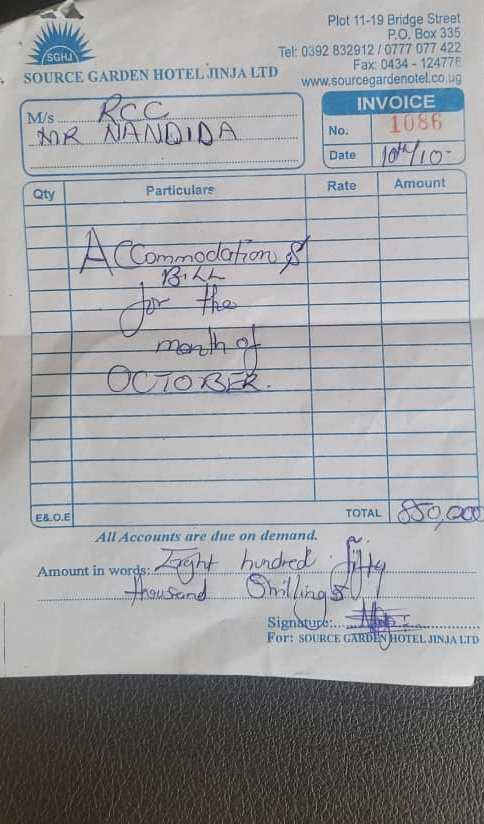 Plot 11-19 Bridge Street
P.O. Box 335
Tel: 0392 832912 / 0777 077 422
Fax: 0434 - 124778
www.sourcegardenotel.co.ug
SGHJ
SOURCE GARDEN HOTEL JINJA LTD
M/s RCC
MR NANDIDA
INVOICE
No. 1086
Date 10th/10-
Qty Particulars Rate Amount
Accommodation
BILL
for the
month of
OCTOBER.
E&.O.E TOTAL 850,000
All Accounts are due on demand.
Amount in words: Eight hundred fifty
thousand Shillings
Signature:
For: SOURCE GARDEN HOTEL JINJA LTD